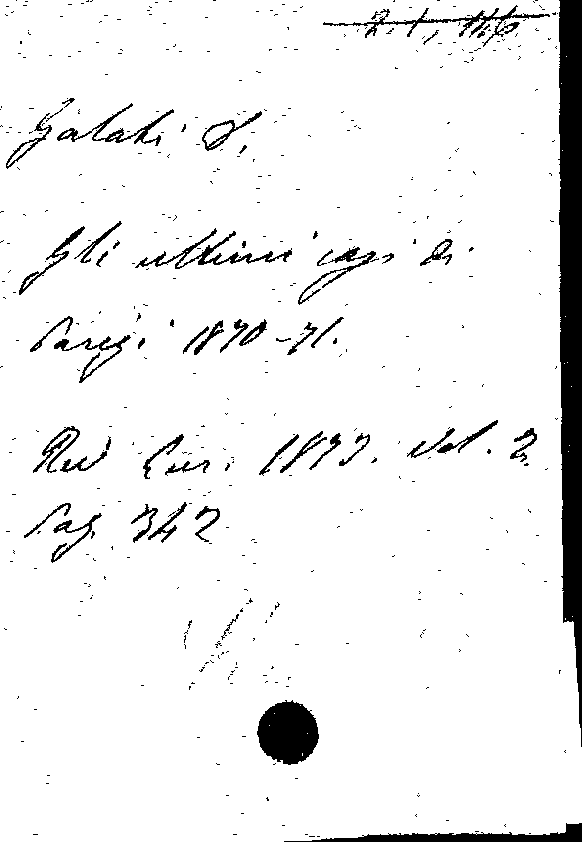 2.1, 146
Galati D.
Gli ultimi casi di
Parigi 1870-71.
Riv Eur. 1873. Vol. 2
Pag. 342